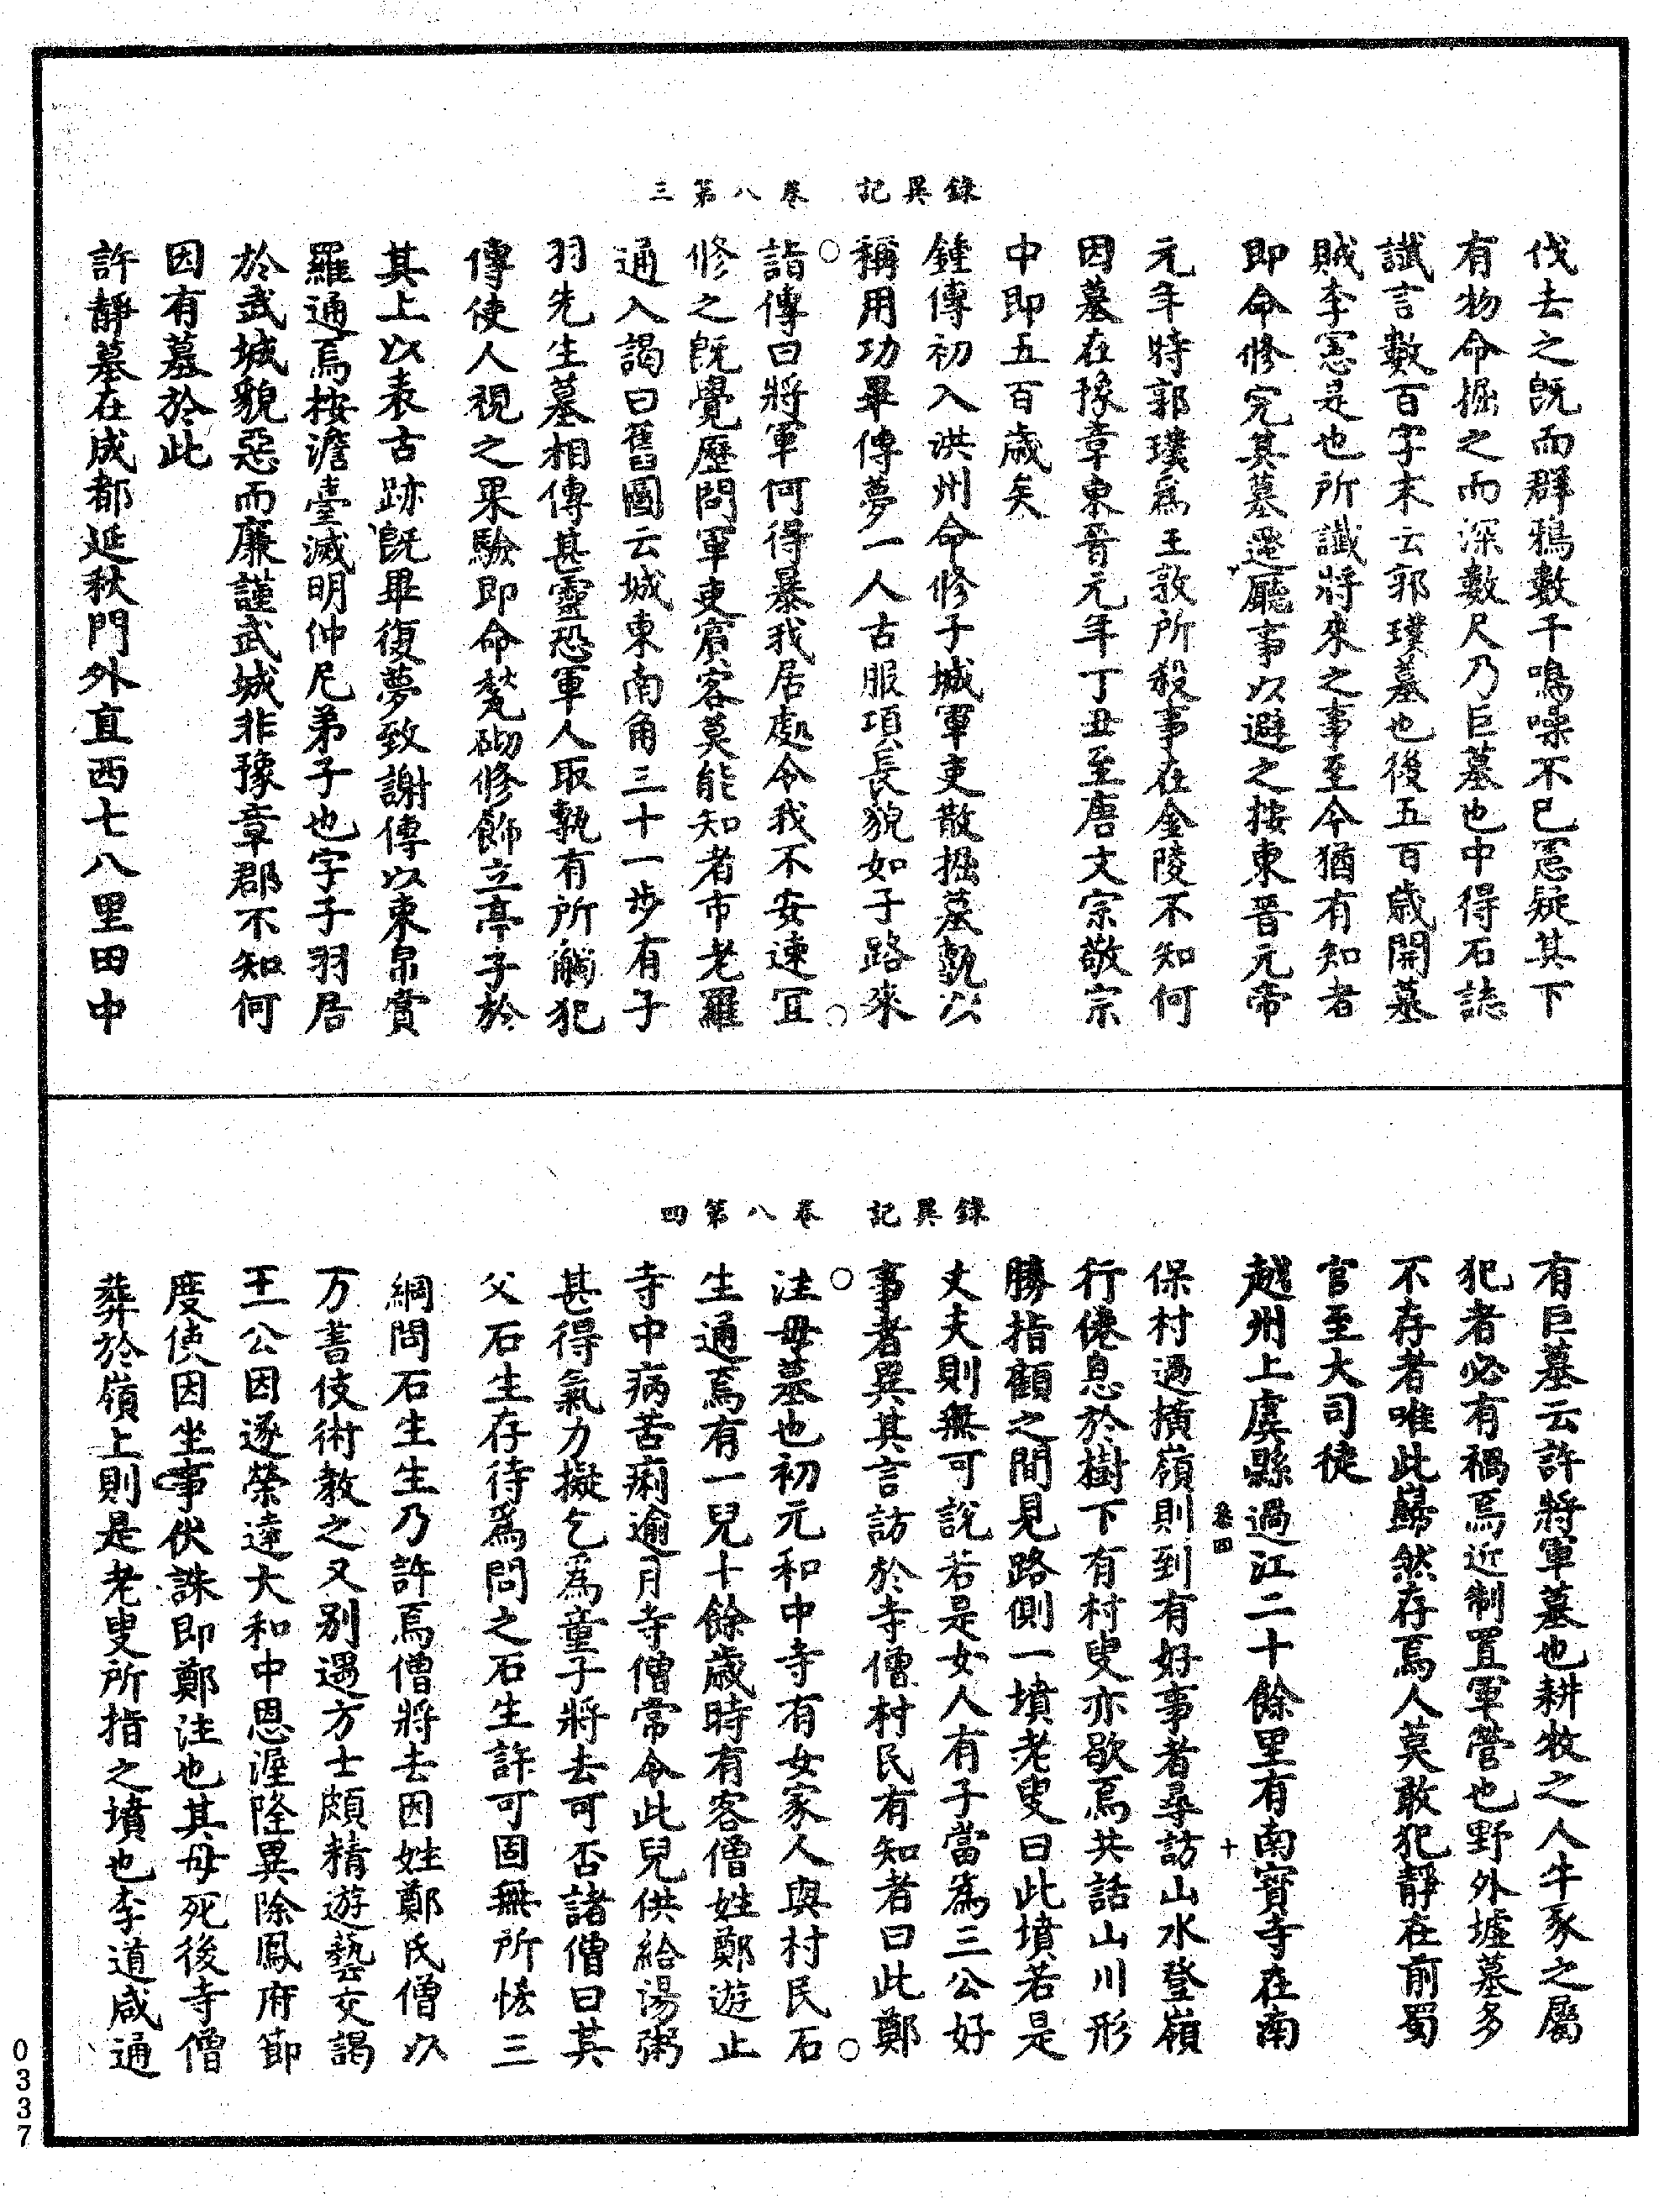 錄異記　卷八第三
伐去之旣而群鴉數千鳴噪不已憲疑其下
有物命掘之而深數尺乃巨墓也中得石誌
讖言數百字末云郭璞墓也後五百歲開墓
賊李憲是也所讖將來之事至今猶有知者
即命修完其墓遷廳事以避之按東晉元帝
元年時郭璞爲王敦所殺事在金陵不知何
因墓在豫章東晉元年丁丑至唐文宗敬宗
中即五百歲矣
鍾傳初入洪州命修子城軍吏散掘墓甎以
稱用功畢傳夢一人古服項長貌如子路來
詣傳曰將軍何得暴我居處令我不安速宜
修之旣覺歷問軍吏賓客莫能知者市老羅
通入謁曰舊圖云城東南角三十一步有子
羽先生墓相傳甚靈恐軍人取甎有所觸犯
傳使人視之果驗即命甃砌修飾立亭子於
其上以表古跡旣畢復夢致謝傳以束帛賞
羅通焉按澹臺滅明仲尼弟子也字子羽居
於武城貌惡而廉謹武城非豫章郡不知何
因有墓於此
許靜墓在成都延秋門外直西七八里田中
錄異記　卷八第四
有巨墓云許將軍墓也耕牧之人牛豕之屬
犯者必有禍焉近制置軍營也野外墟墓多
不存者唯此巋然存焉人莫敢犯靜在前蜀
官至大司徒
越州上虞縣過江二十餘里有南寶寺在南
卷四　十
保村過橫嶺則到有好事者尋訪山水登嶺
行倦息於樹下有村叟亦歇焉共話山川形
勝指顧之間見路側一墳老叟曰此墳若是
丈夫則無可說若是女人有子當爲三公好
事者異其言訪於寺僧村民有知者曰此鄭
注母墓也初元和中寺有女家人與村民石
生通焉有一兒十餘歲時有客僧姓鄭遊止
寺中病苦痢逾月寺僧常令此兒供給湯粥
甚得氣力擬乞爲童子將去可否諸僧曰其
父石生存待爲問之石生許可固無所恡三
綱問石生生乃許焉僧將去因姓鄭氏僧以
万書伎術教之又別遇方士頗精遊藝交謁
王公因遂榮達大和中恩渥隆異除鳳府節
度使因坐事伏誅即鄭注也其母死後寺僧
葬於嶺上則是老叟所指之墳也李道咸通
0337